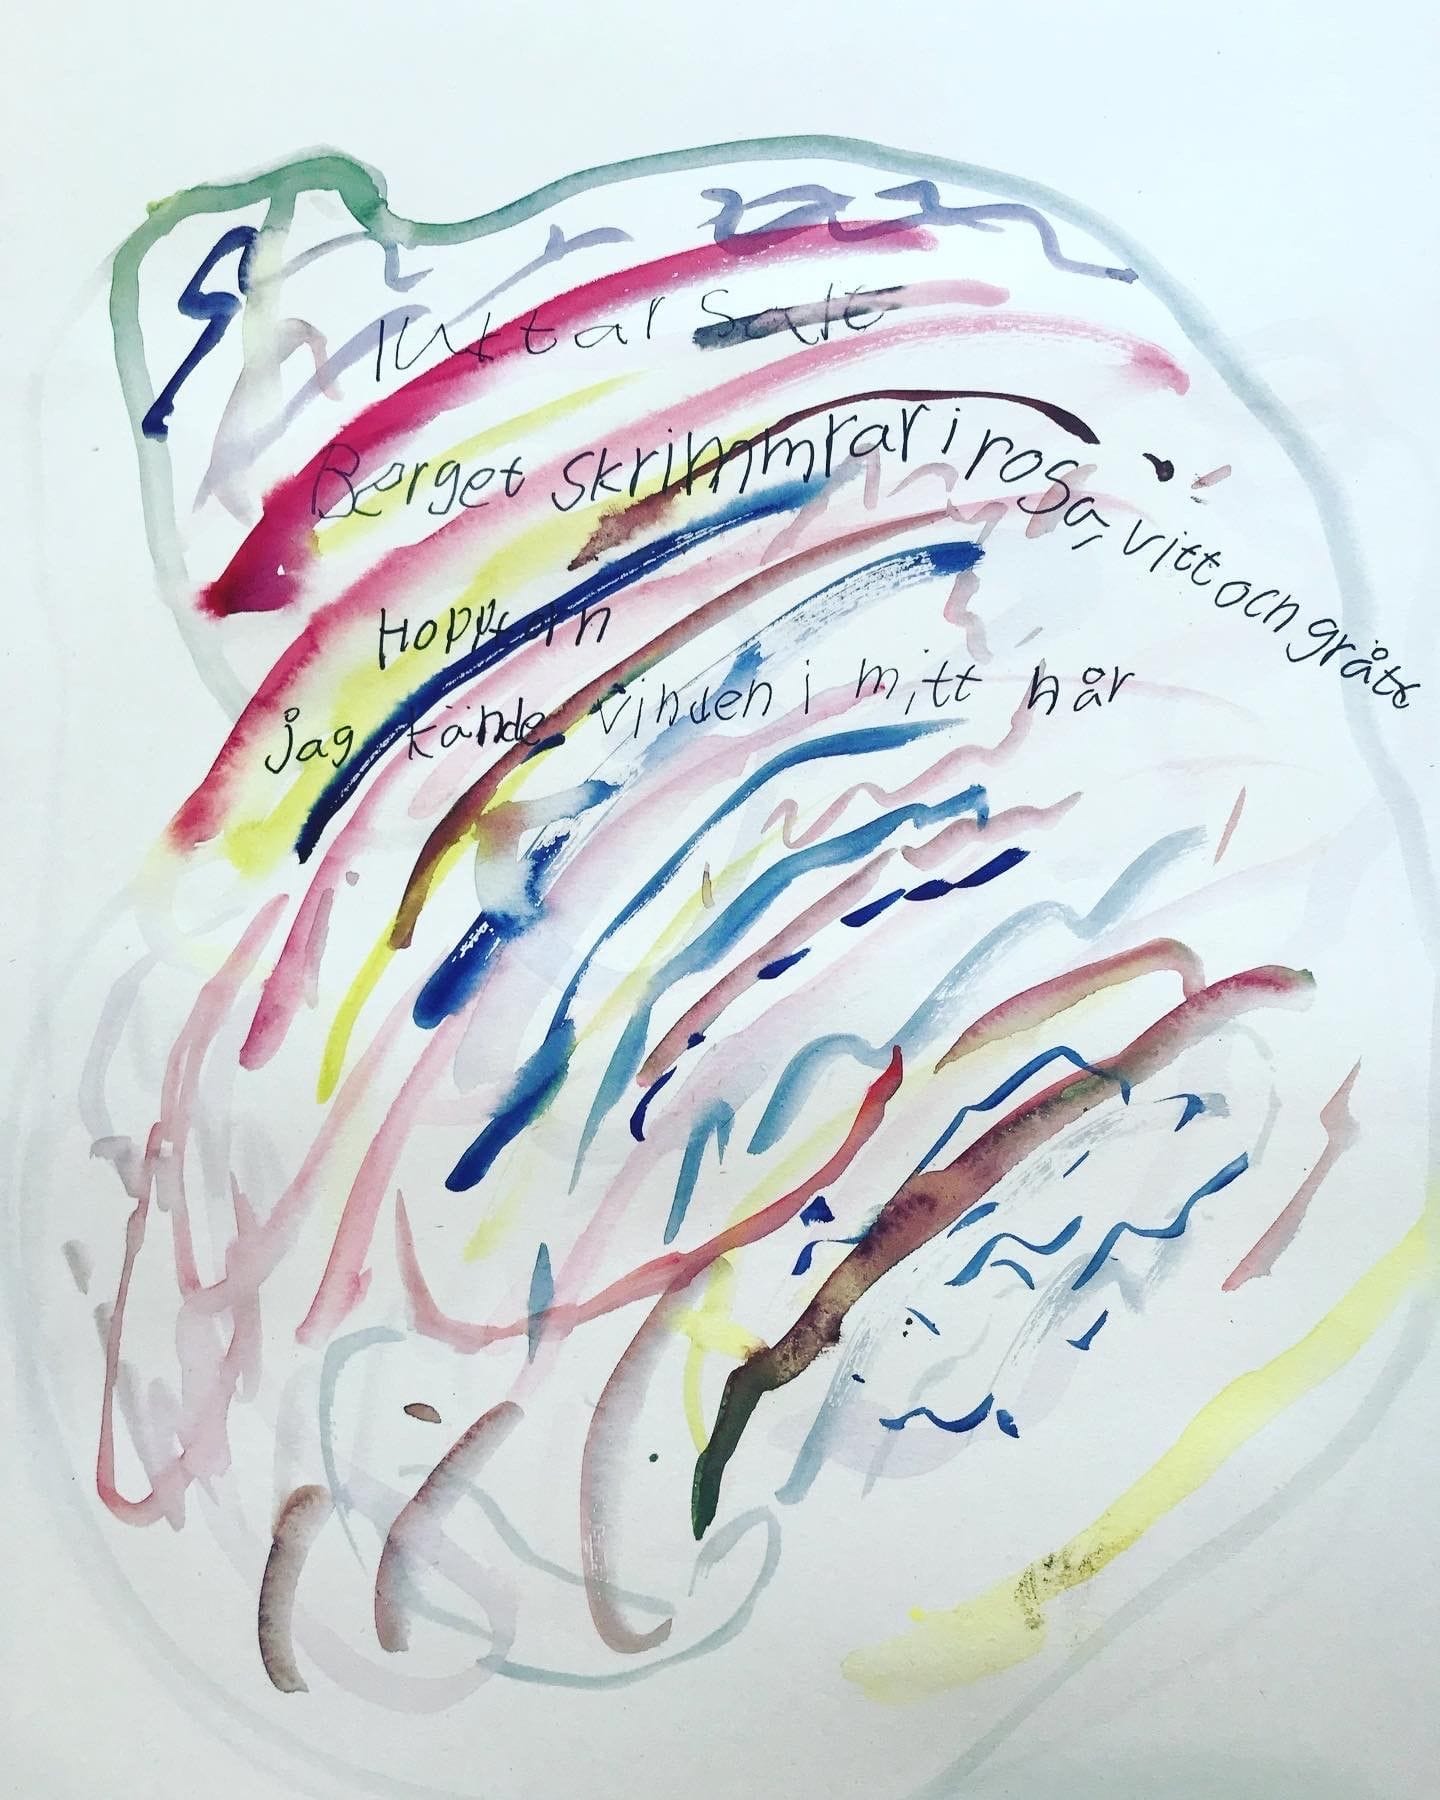 luktar salt
Berget skrimmrar i rosa, vitt och grått
Hoppa in
jag kände vinden i mitt hår